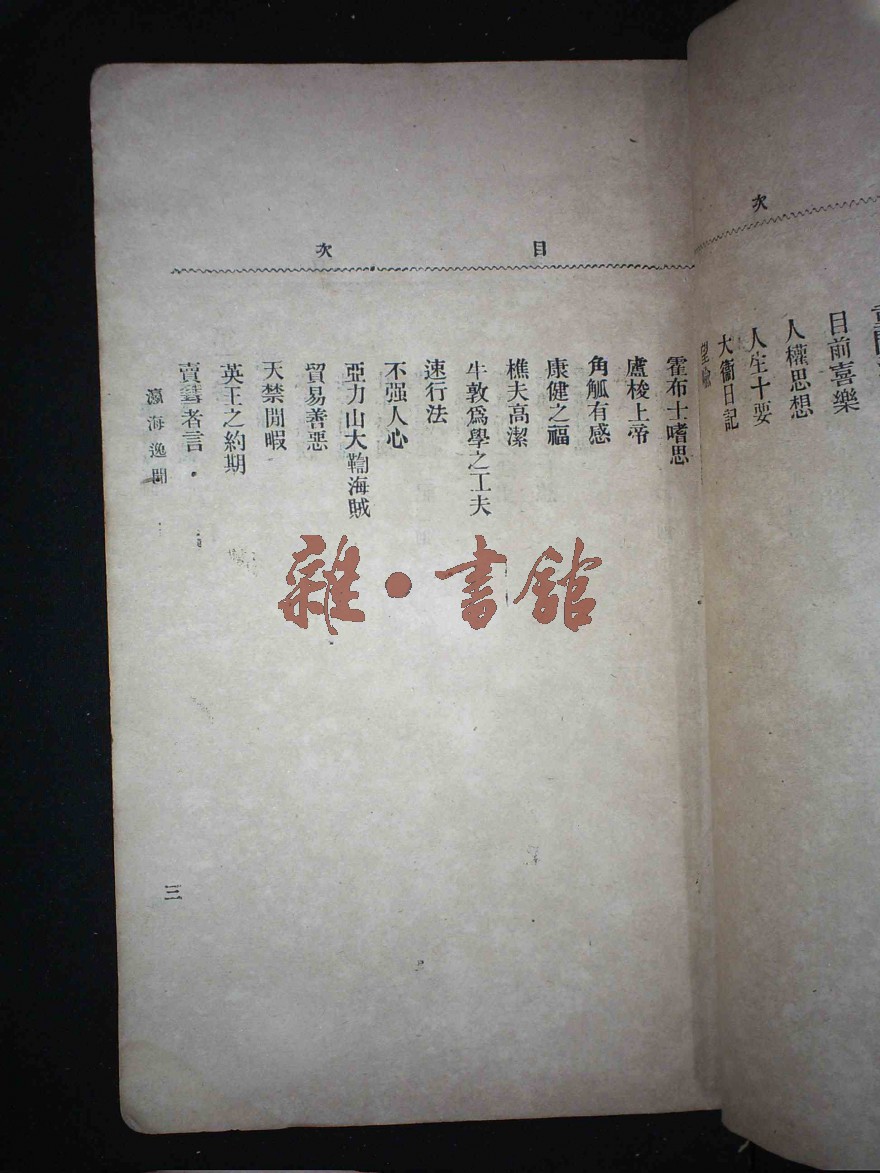 次
目前喜樂
人權思想
人生十要
大衞日記
目次
霍布士嗜思
盧梭上帝
角觝有感
康健之福
樵夫高潔
牛敦爲學之工夫
速行法
不强人心
亞力山大鞫海賊
貿易善惡
天禁閒暇
英王之約期
賣彗者言
瀛海逸聞
三
雜·書館